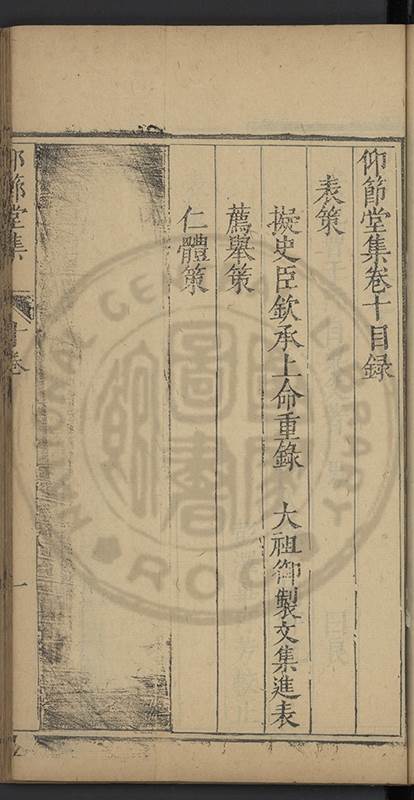 仰節堂集卷十目錄
表策
擬史臣欽承上命重錄 大祖御製文集進表
薦舉策
仁體策
節堂集
卷十目
一